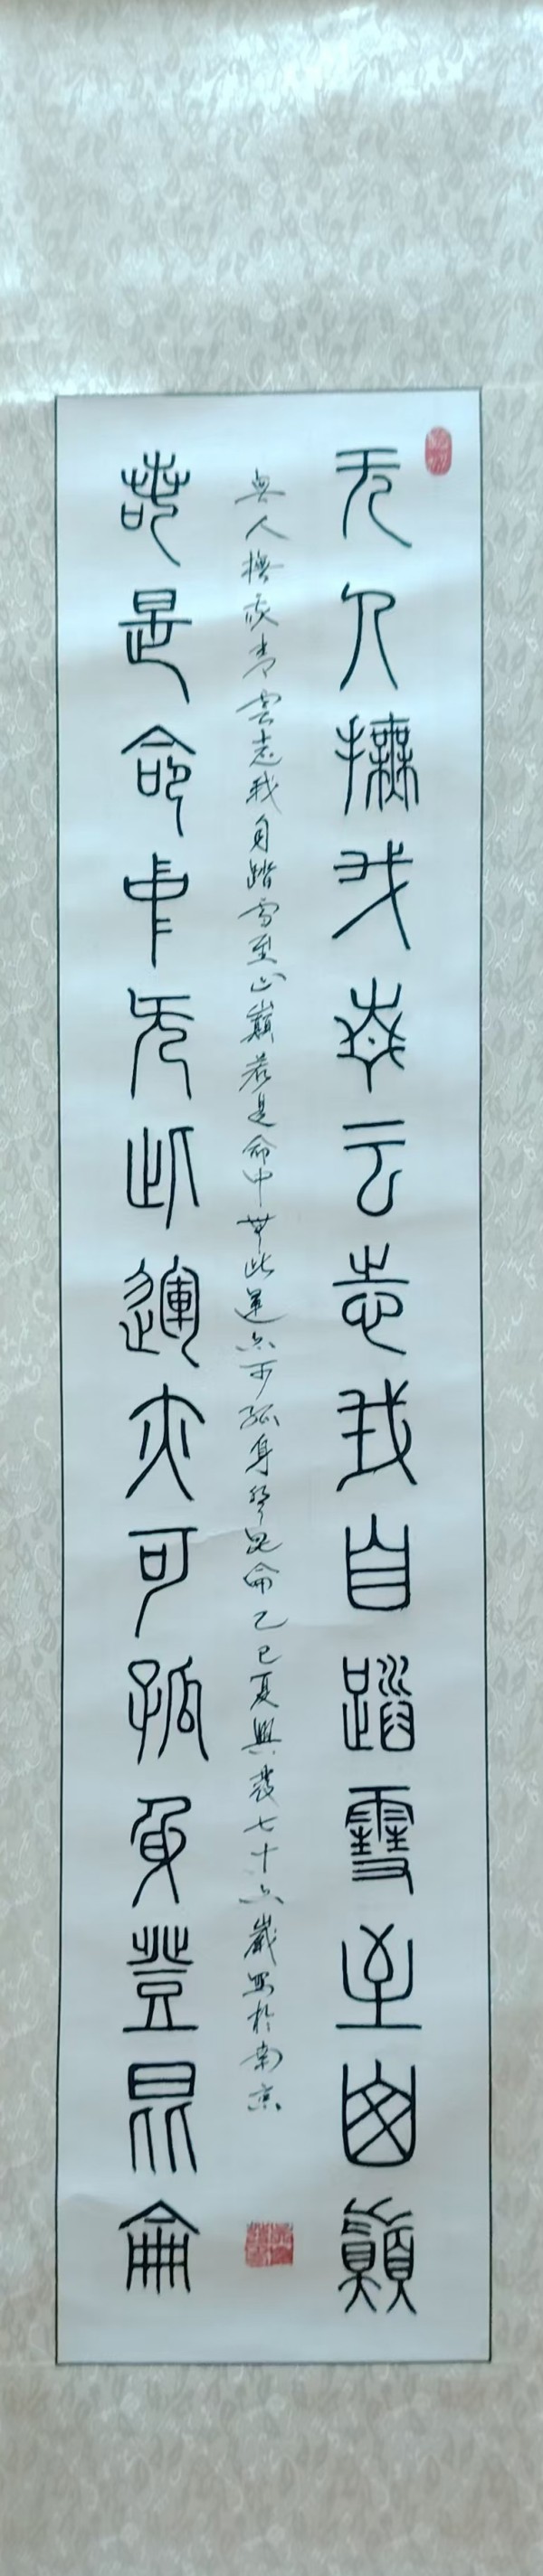 无人撫我青云志我自踏雪至山顛
無人撫我青雲志我自踏雪至山巔若是命中無此運亦可孤身登昆侖乙巳夏興發七十六歲寫於南京
若是命中无此運亦可孤身登昆侖